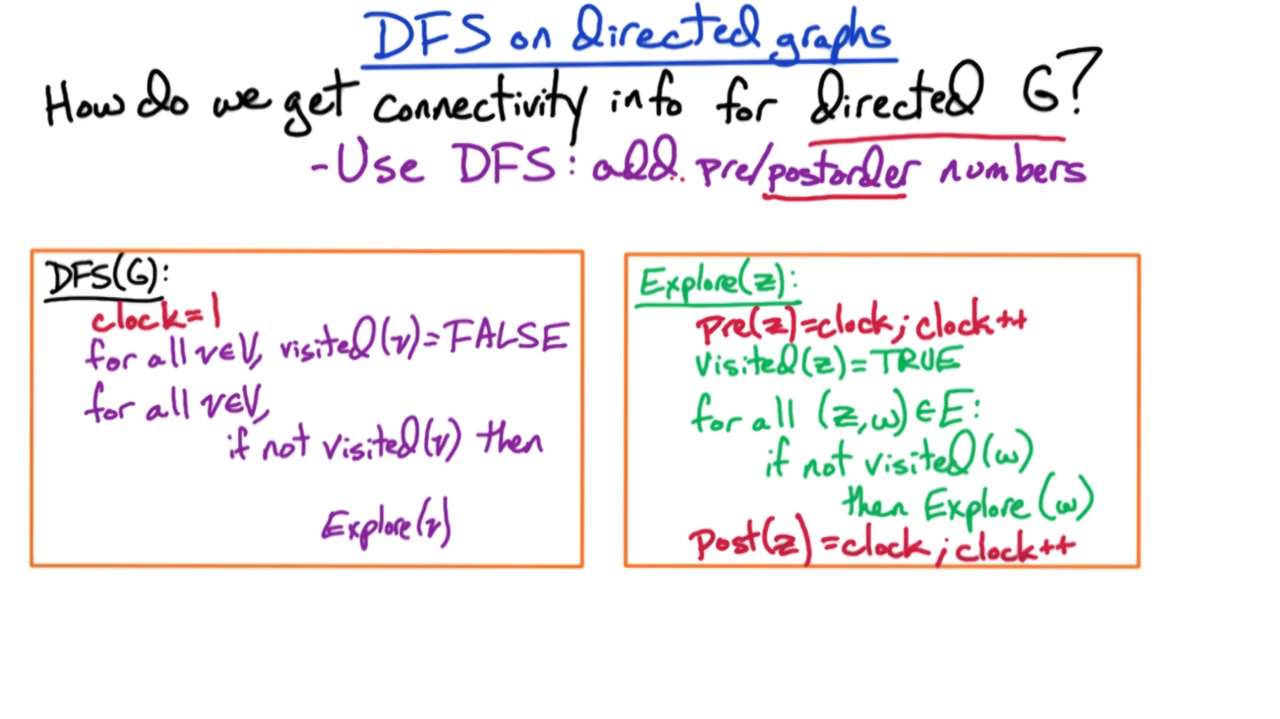 DFS on directed graphs
How do we get connectivity info for directed G?
-Use DFS: add pre/postorder numbers
DFS(G):
clock=1
for all v∈V, visited(v)=FALSE
for all v∈V,
if not visited(v) then
Explore(v)
Explore(z):
pre(z)=clock; clock++
visited(z)=TRUE
for all (z,w)∈E:
if not visited(w)
then Explore(w)
post(z)=clock; clock++